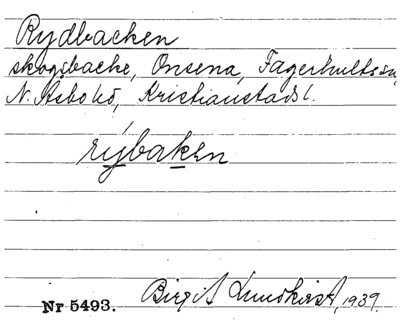 Rydbacken
skogsbacke, Onsena, Fagerhultssn,
N. Åsbo hd, Kristianstads l.
rýbaken
Nr 5493. Birgit Lundkvist, 1939.